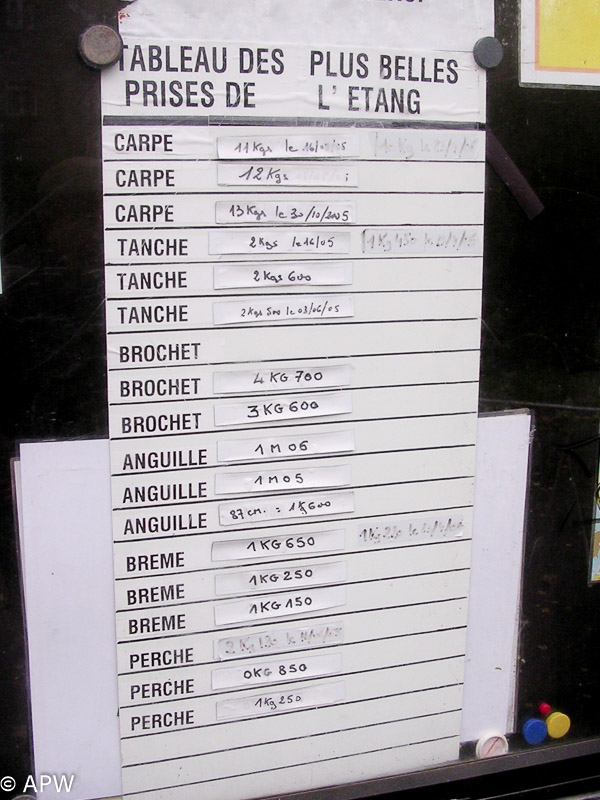 TABLEAU DES PLUS BELLES
PRISES DE L'ETANG
CARPE 11Kgs le
CARPE 12Kgs
CARPE 13Kgs le 30/10/2005
TANCHE 2Kgs le 16/05
TANCHE 2Kgs 600
TANCHE 2Kgs 500 le 03/06/05
BROCHET
BROCHET 4KG700
BROCHET 3KG600
ANGUILLE 1M06
ANGUILLE 1M05
ANGUILLE 87cm. = 1K600
BREME 1KG650
BREME 1KG250
BREME 1KG150
PERCHE
PERCHE 0KG850
PERCHE 1Kg250
© APW